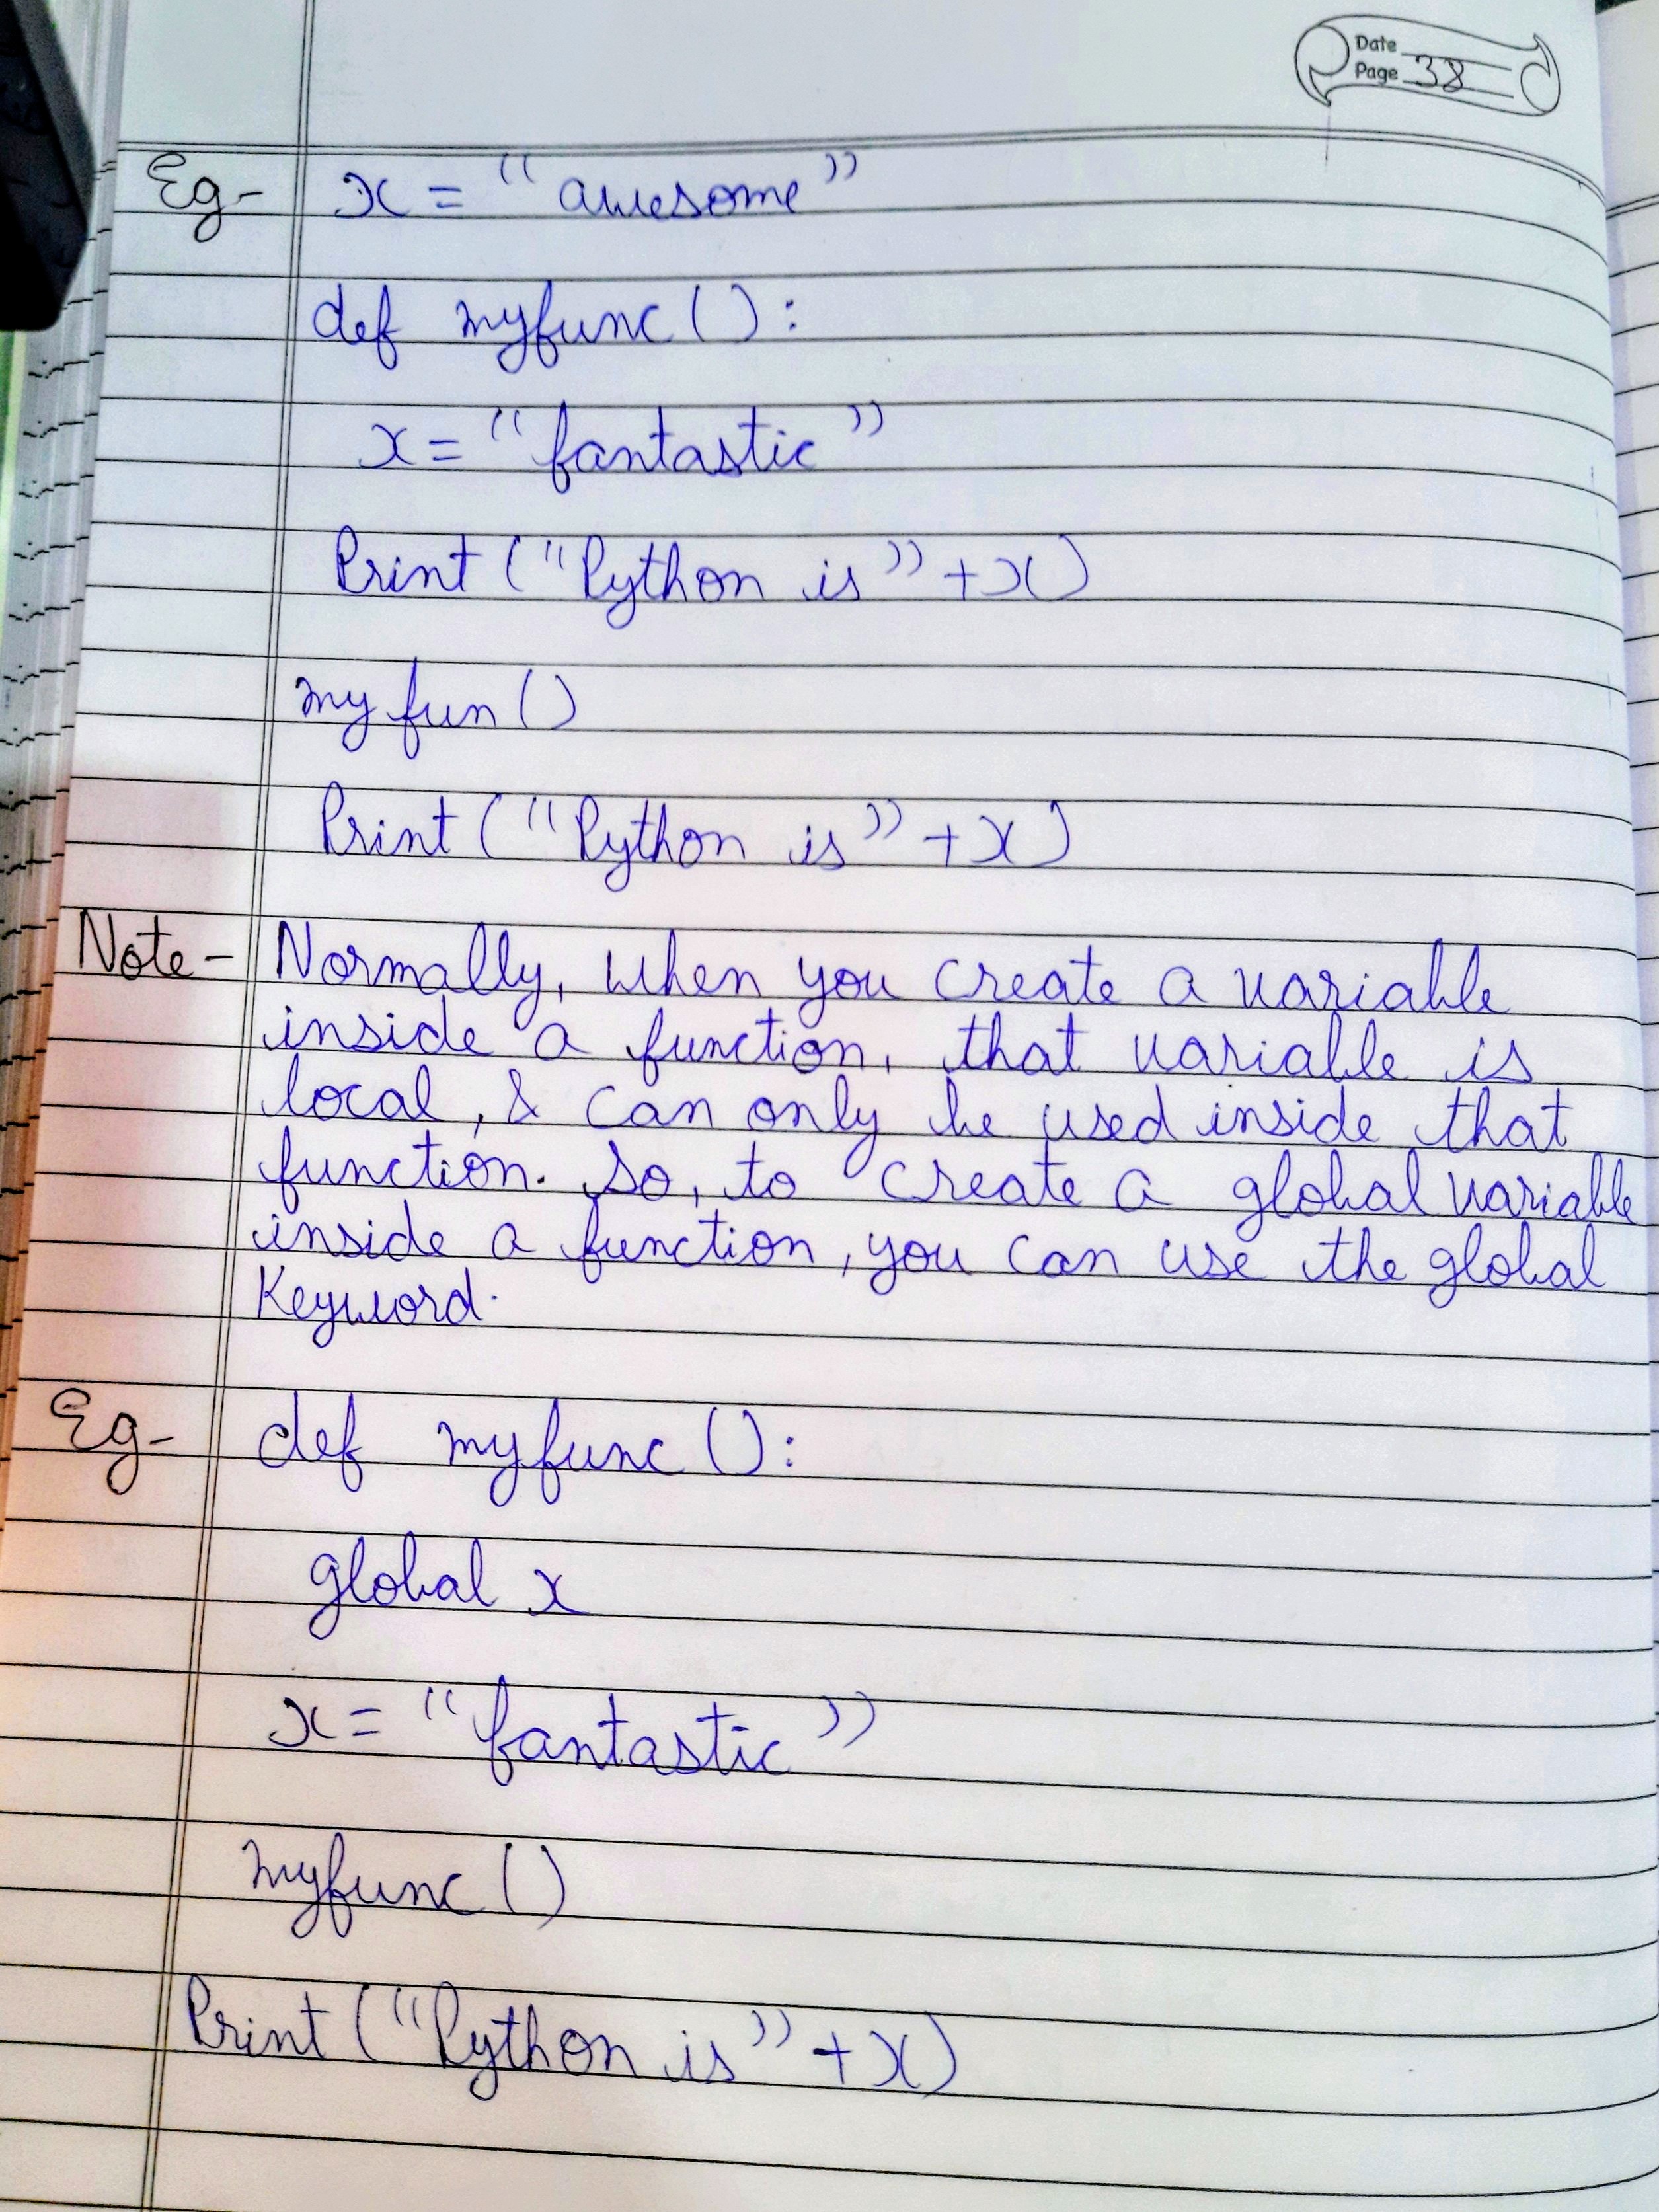 Date
Page 38
Eg- x = "awesome"
def myfunc():
x = "fantastic"
Print ("Python is" + x)
my fun()
Print ("Python is" + x)
Note- Normally, when you create a variable
inside a function, that variable is
local, & can only be used inside that
function. So, to create a global variable
inside a function, you can use the global
Keyword.
Eg- def myfunc():
global x
x = "fantastic"
myfunc()
Print ("Python is" + x)